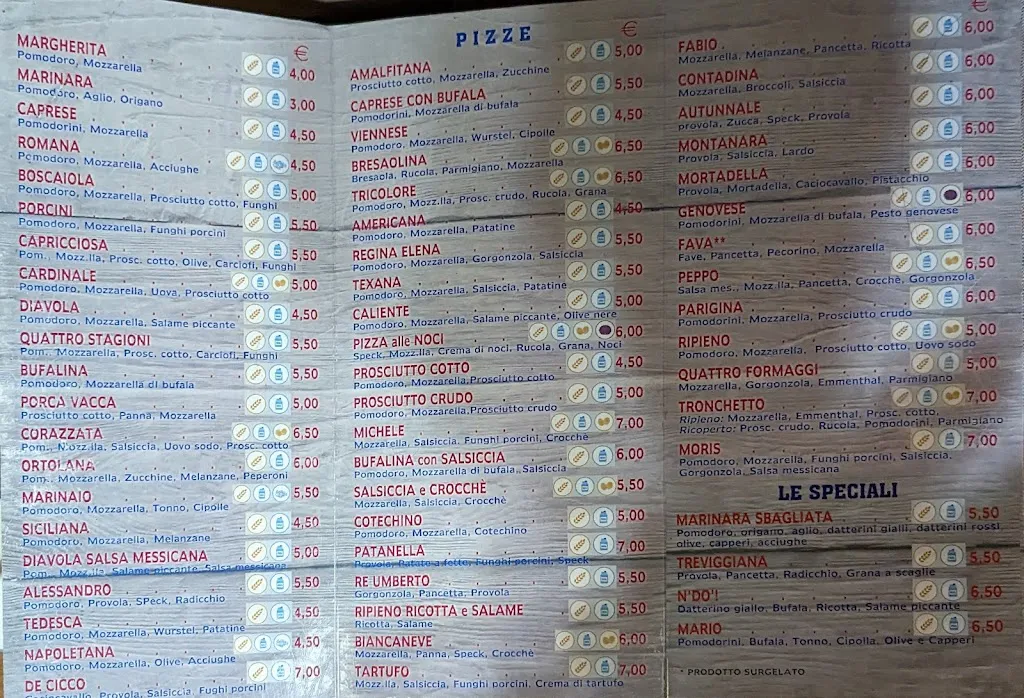 €
MARGHERITA 4,00
Pomodoro, Mozzarella
MARINARA 3,00
Pomodoro, Aglio, Origano
CAPRESE 4,50
Pomodorini, Mozzarella
ROMANA 4,50
Pomodoro, Mozzarella, Acciughe
BOSCAIOLA 5,00
Pomodoro, Mozzarella, Prosciutto cotto, Funghi
PORCINI 5,50
Pomodoro, Mozzarella, Funghi porcini
CAPRICCIOSA 5,50
Pom., Mozz.lla, Prosc. cotto, Olive, Carciofi, Funghi
CARDINALE 5,00
Pomodoro, Mozzarella, Uova, Prosciutto cotto
DIAVOLA 4,50
Pomodoro, Mozzarella, Salame piccante
QUATTRO STAGIONI 5,50
Pom., Mozzarella, Prosc. cotto, Carciofi, Funghi
BUFALINA 5,50
Pomodoro, Mozzarella di bufala
PORCA VACCA 5,00
Prosciutto cotto, Panna, Mozzarella
CORAZZATA 6,50
Pom., Mozz.lla, Salsiccia, Uovo sodo, Prosc.cotto
ORTOLANA 6,00
Pom., Mozzarella, Zucchine, Melanzane, Peperoni
MARINAIO 5,50
Pomodoro, Mozzarella, Tonno, Cipolle
SICILIANA 4,50
Pomodoro, Mozzarella, Melanzane
DIAVOLA SALSA MESSICANA 5,00
Pom., Mozz.lla, Salame piccante, Salsa messicana
ALESSANDRO 5,50
Pomodoro, Provola, SPeck, Radicchio
TEDESCA 4,50
Pomodoro, Mozzarella, Wurstel, Patatine
NAPOLETANA 4,50
Pomodoro, Mozzarella, Olive, Acciughe
DE CICCO 7,00
Caciocavallo, Provola, Salsiccia, Fughi porcini
PIZZE
€
AMALFITANA 5,00
Prosciutto cotto, Mozzarella, Zucchine
CAPRESE CON BUFALA 5,50
Pomodorini, Mozzarella di bufala
VIENNESE 4,50
Mozzarella, Wurstel, Cipolle
BRESAOLINA 6,50
Bresaola, Rucola, Parmigiano, Mozzarella
TRICOLORE 6,50
Pomodoro, Mozz.lla, Prosc. crudo, Rucola, Grana
AMERICANA 4,50
Pomodoro, Mozzarella, Patatine
REGINA ELENA 5,50
Pomodoro, Mozzarella, Gorgonzola, Salsiccia
TEXANA 5,50
Pomodoro, Mozzarella, Salsiccia, Patatine
CALIENTE 5,00
Pomodoro, Mozzarella, Salame piccante, Olive nere
PIZZA alle NOCI 6,00
Speck, Mozz.lla, Crema di noci, Rucola, Grana, Noci
PROSCIUTTO COTTO 4,50
Pomodoro, Mozzarella,Prosciutto cotto
PROSCIUTTO CRUDO 5,00
Pomodoro, Mozzarella,Prosciutto crudo
MICHELE 7,00
Mozzarella, Salsiccia, Funghi porcini, Crocchè
BUFALINA con SALSICCIA 6,00
Pomodoro, Mozzarella di bufala, Salsiccia
SALSICCIA e CROCCHÈ 5,50
Mozzarella, Salsiccia, Crocchè
COTECHINO 5,00
Pomodoro, Mozzarella, Cotechino
PATANELLA 7,00
Provola, Patato a fette, Funghi porcini, Speck
RE UMBERTO 5,50
Gorgonzola, Pancetta, Provola
RIPIENO RICOTTA e SALAME 5,50
Ricotta, Salame
BIANCANEVE 6,00
Mozzarella, Panna, Speck, Crocchè
TARTUFO 7,00
Mozz.lla, Salsiccia, Funghi porcini, Crema di tartufo
€
FABIO 6,00
Mozzarella, Melanzane, Pancetta, Ricotta
CONTADINA 6,00
Mozzarella, Broccoli, Salsiccia
AUTUNNALE 6,00
provola, Zucca, Speck, Provola
MONTANARA 6,00
Provola, Salsiccia, Lardo
MORTADELLA 6,00
Provola, Mortadella, Caciocavallo, Pistacchio
GENOVESE 6,00
Pomodorini, Mozzarella di bufala, Pesto genovese
FAVA** 6,00
Fave, Pancetta, Pecorino, Mozzarella
PEPPO 6,50
Salsa mes., Mozz.lla, Pancetta, Crocchè, Gorgonzola
PARIGINA 6,00
Pomodorini, Mozzarella, Prosciutto crudo
RIPIENO 5,00
Pomodoro, Mozzarella, Prosciutto cotto, Uovo sodo
QUATTRO FORMAGGI 5,00
Mozzarella, Gorgonzola, Emmenthal, Parmigiano
TRONCHETTO 7,00
Ripieno: Mozzarella, Emmenthal, Prosc. cotto,
Ricoperto: Prosc. crudo, Rucola, Pomodorini, Parmigiano
MORIS 7,00
Pomodoro, Mozzarella, Funghi porcini, Salsiccia,
Gorgonzola, Salsa messicana
LE SPECIALI
MARINARA SBAGLIATA 5,50
Pomodoro, origano, aglio, datterini gialli, datterini rossi,
olive, capperi, acciughe
TREVIGGIANA 5,50
Provola, Pancetta, Radicchio, Grana a scaglie
N'DO'! 6,50
Datterino giallo, Bufala, Ricotta, Salame piccante
MARIO 6,50
Pomodorini, Bufala, Tonno, Cipolla, Olive e Capperi
* PRODOTTO SURGELATO